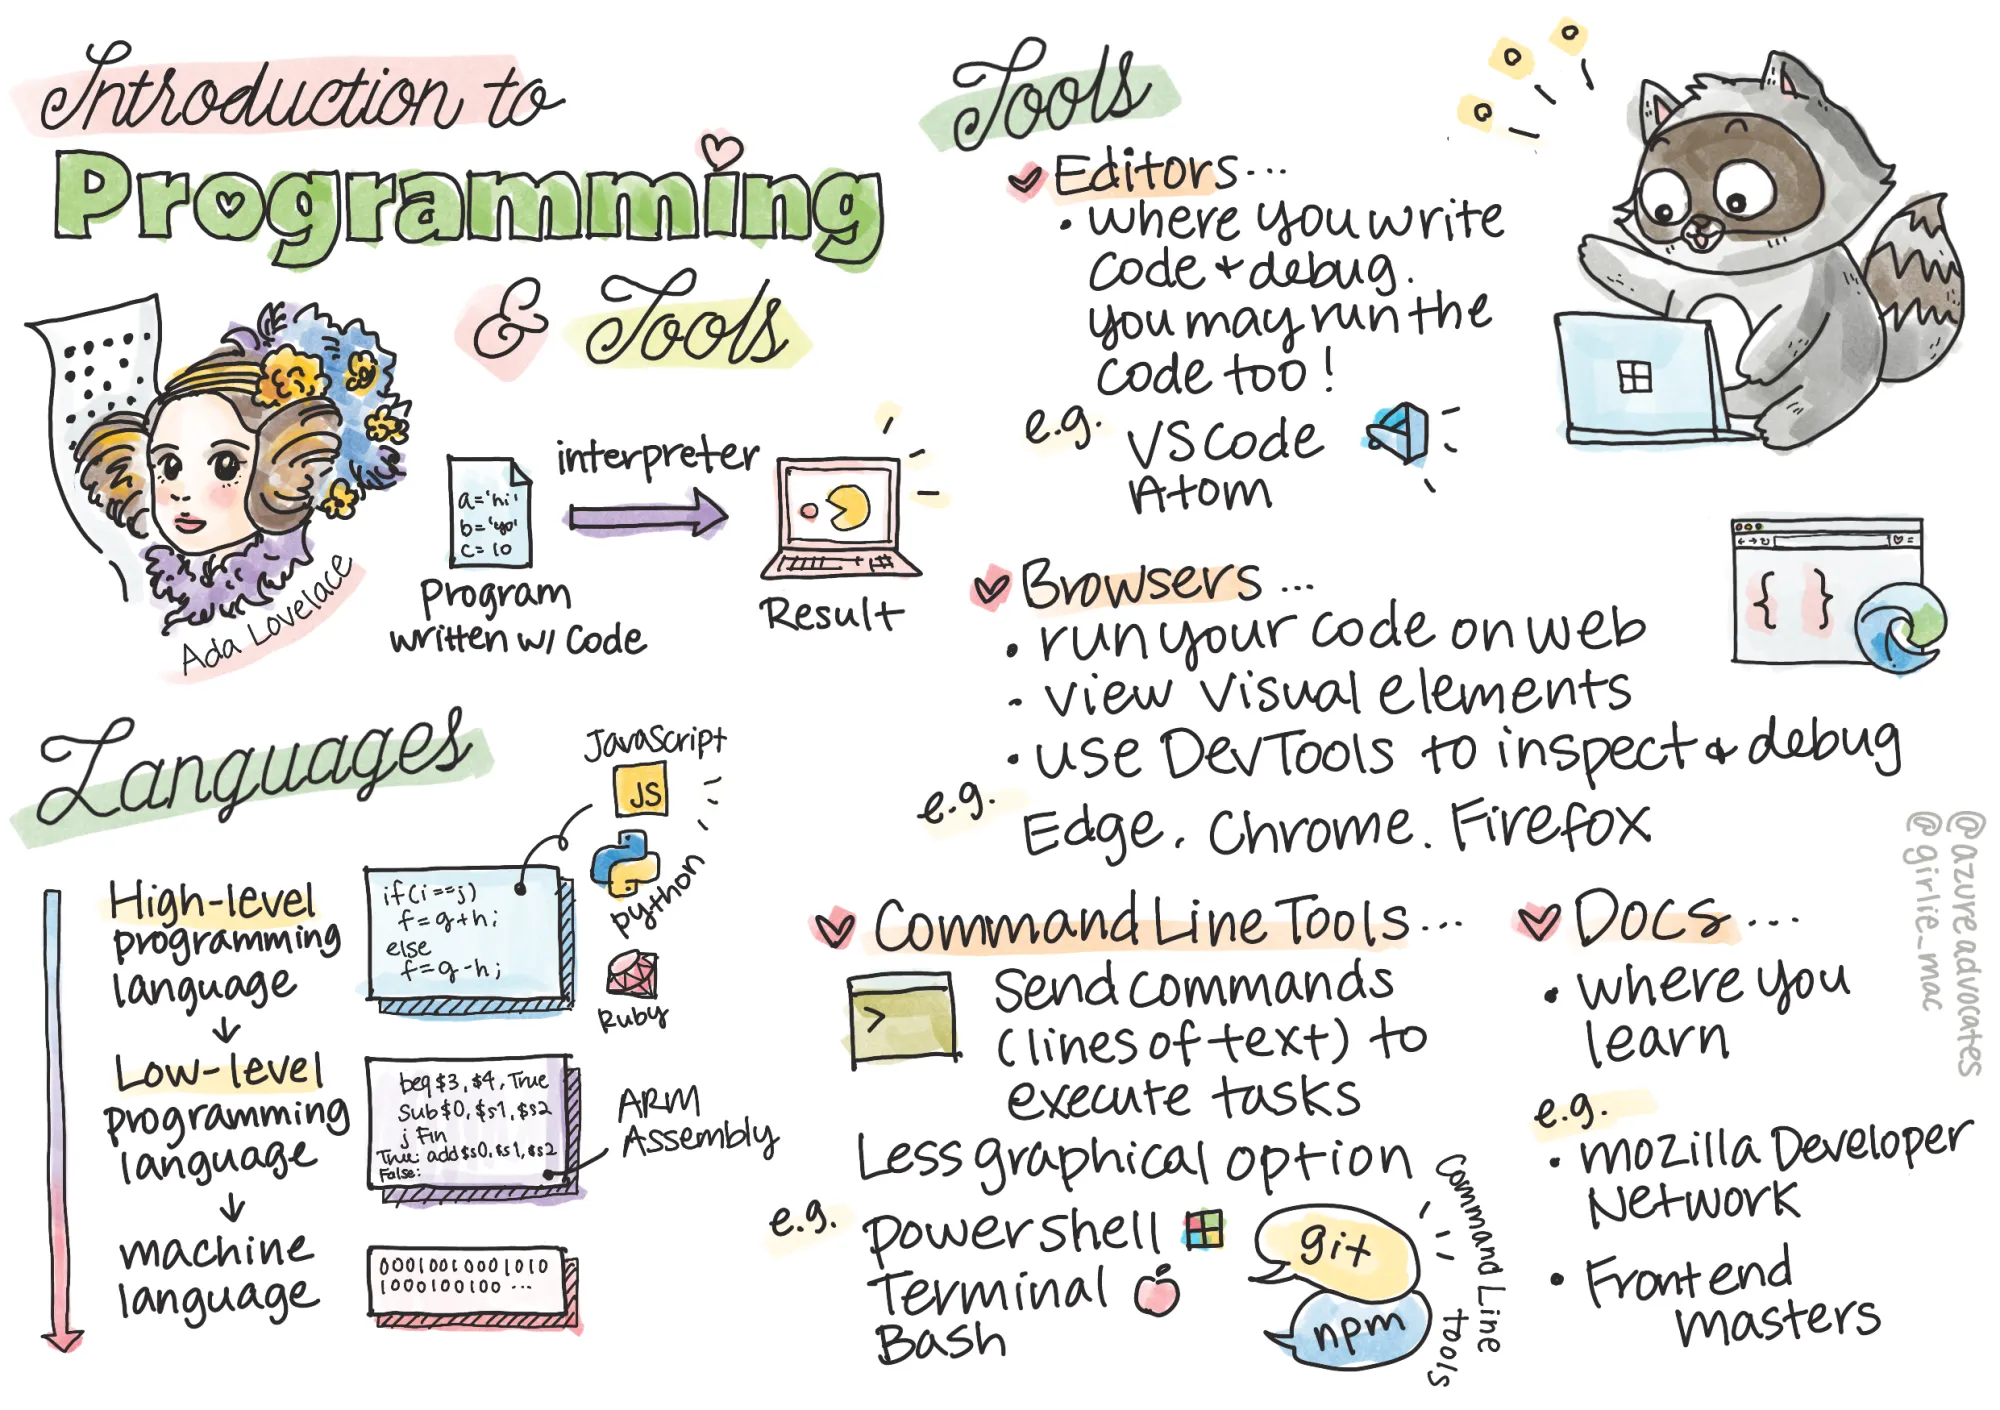 Introduction to
Programming
& Tools
Ada Lovelace
a='hi'
b='yo'
c=10
Program
written w/ code
interpreter
Result
Languages
High-level
programming
language
if(i==j)
f=g+h;
else
f=g-h;
JavaScript
JS
python
Ruby
Low-level
programming
language
beq $3, $4, True
Sub $0, $s1, $s2
j Fin
True: add $s0, $s1, $s2
False:
ARM
Assembly
machine
language
00010010001010
1000100100...
Tools
Editors...
• where you write
code + debug.
you may run the
code too!
e.g.
VS Code
Atom
Browsers...
• run your code on web
• view visual elements
• use DevTools to inspect & debug
e.g.
Edge. Chrome. Firefox
{ }
Command Line Tools...
>
Send commands
(lines of text) to
execute tasks
Less graphical option
e.g.
powershell
Terminal
Bash
git
npm
Command Line
tools
Docs...
• where you
learn
e.g.
• mozilla Developer
Network
• Frontend
masters
@azureadvocates
@girlie_mac